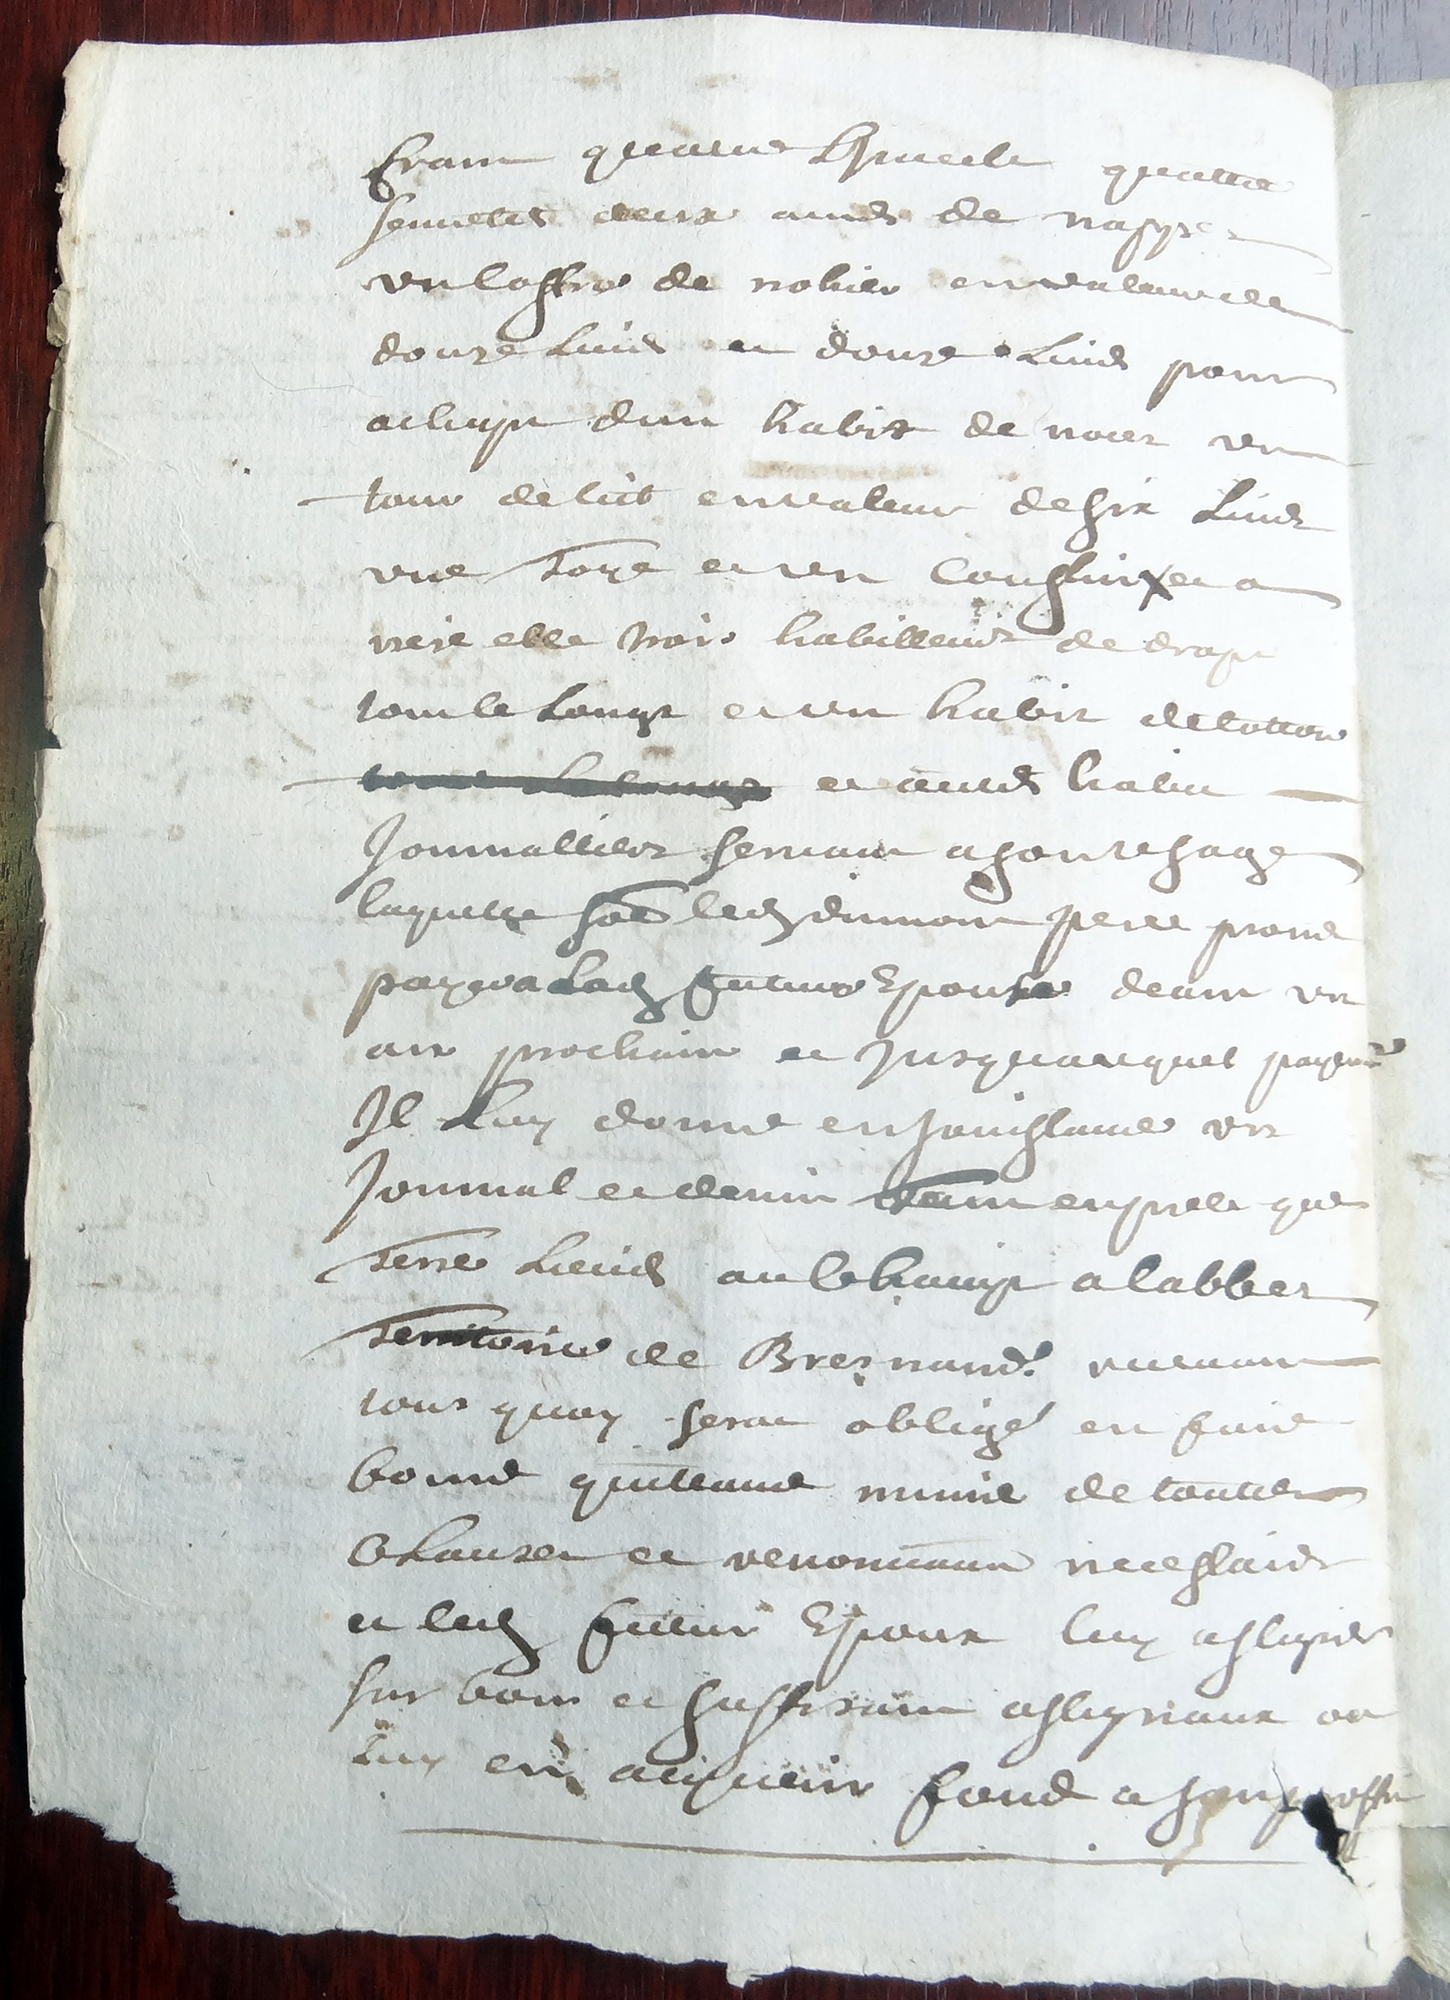 quatre
serviette deux aunes de nappe
un coffre de nohier en valeur de
douze livres et douze livres pour
achapt dun habit de noces un
tour de lict en valeur de six livres
une taye et un coussin et a
elle trois habillemt de drapt
tout le longt et un habit de cotton
et autres habit
Journalliers servant a son usage
laquelle so͞e led dumont pere promet
payer a lad future Epouse dans un
an prochain et Jusqua auquel payemt
Il luy donne en Jouissance un
Journal et demin
terre lieudt au Champt a labbez
territoire de Bresnand
tous quoy serat obligé en faire
bonne quittance munie de toutte
Clauses et renontiation necessaire
et led futur Epoux luy assigner
sur bons et suffisant assignaux ou
luy en acquerir fond a son proffit